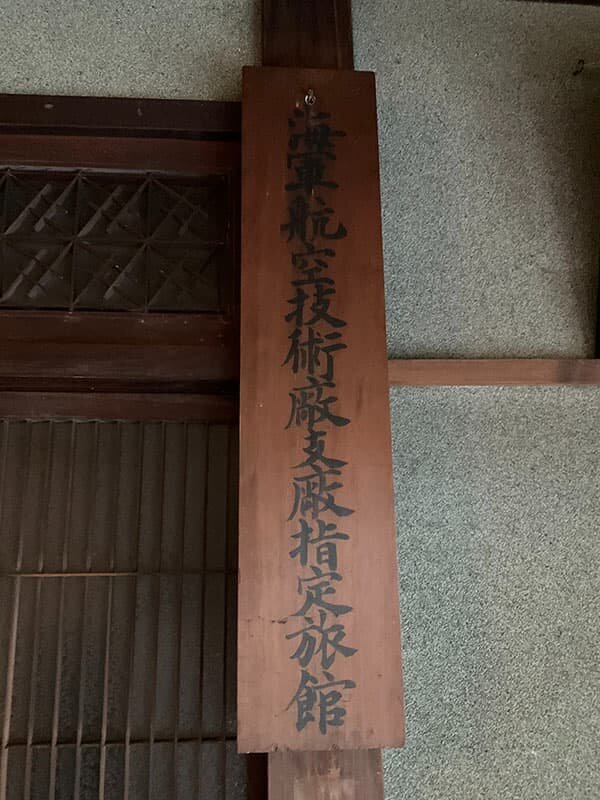 海軍航空技術廠支廠指定旅館